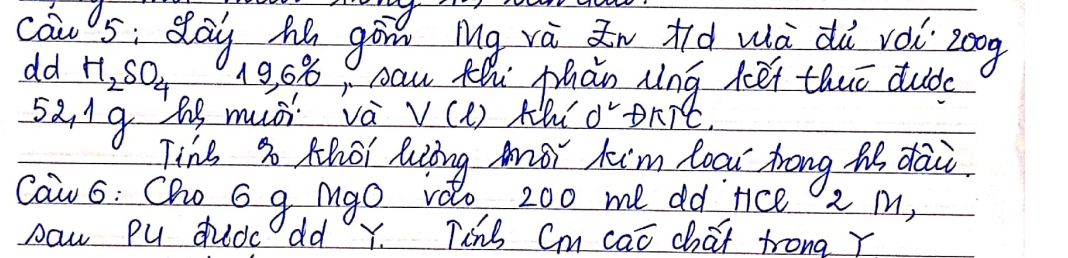 Câu 5: Lấy hh gồm Mg và Zn t/d vừa đủ với 200g
dd H₂SO₄ 19,6%, sau khi phản ứng kết thúc được
52,1 g hh muối và V (l) khí ở ĐKTC.
Tính % khối lượng mỗi kim loại trong hh đầu.
Câu 6: Cho 6 g MgO vào 200 ml dd HCl 2 M,
sau PƯ được dd Y. Tính CM các chất trong Y